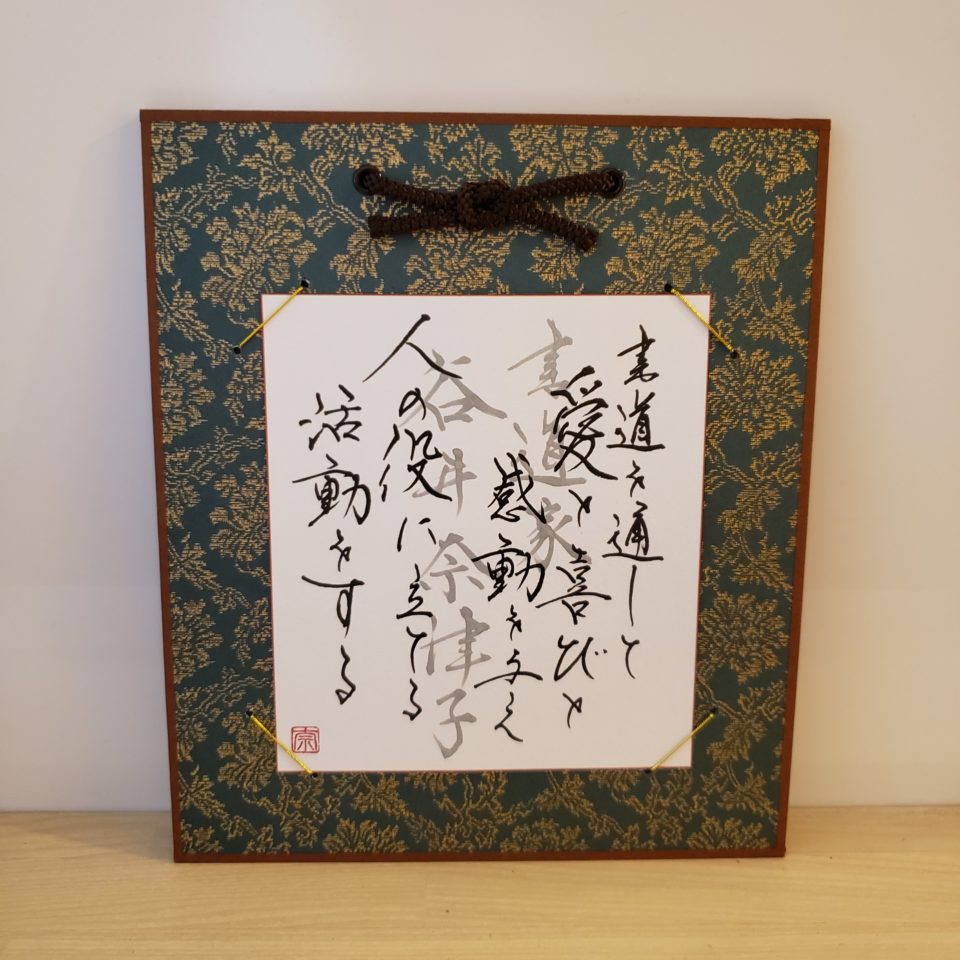 書道を通して
愛と喜びと
感動を与え
人の役に立てる
活動をする
書道家
谷井奈津子
奈